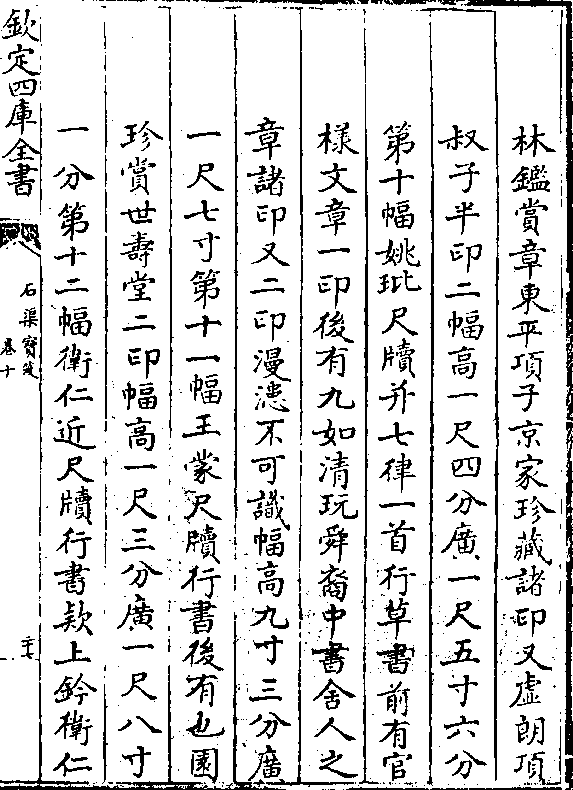 林鑑賞章東平項子京家珍藏諸印又虛朗項
叔子半印二幅高一尺四分廣一尺五寸六分
第十幅姚玭尺牘并七律一首行草書前有官
樣文章一印後有九如清玩舜裔中書舍人之
章諸印又二印漫漶不可識幅高九寸三分廣
一尺七寸第十一幅王蒙尺牘行書後有也園
珍賞世壽堂二印幅高一尺三分廣一尺八寸
一分第十二幅衛仁近尺牘行書款上鈐衛仁
欽定四庫全書
石渠寶笈
卷十